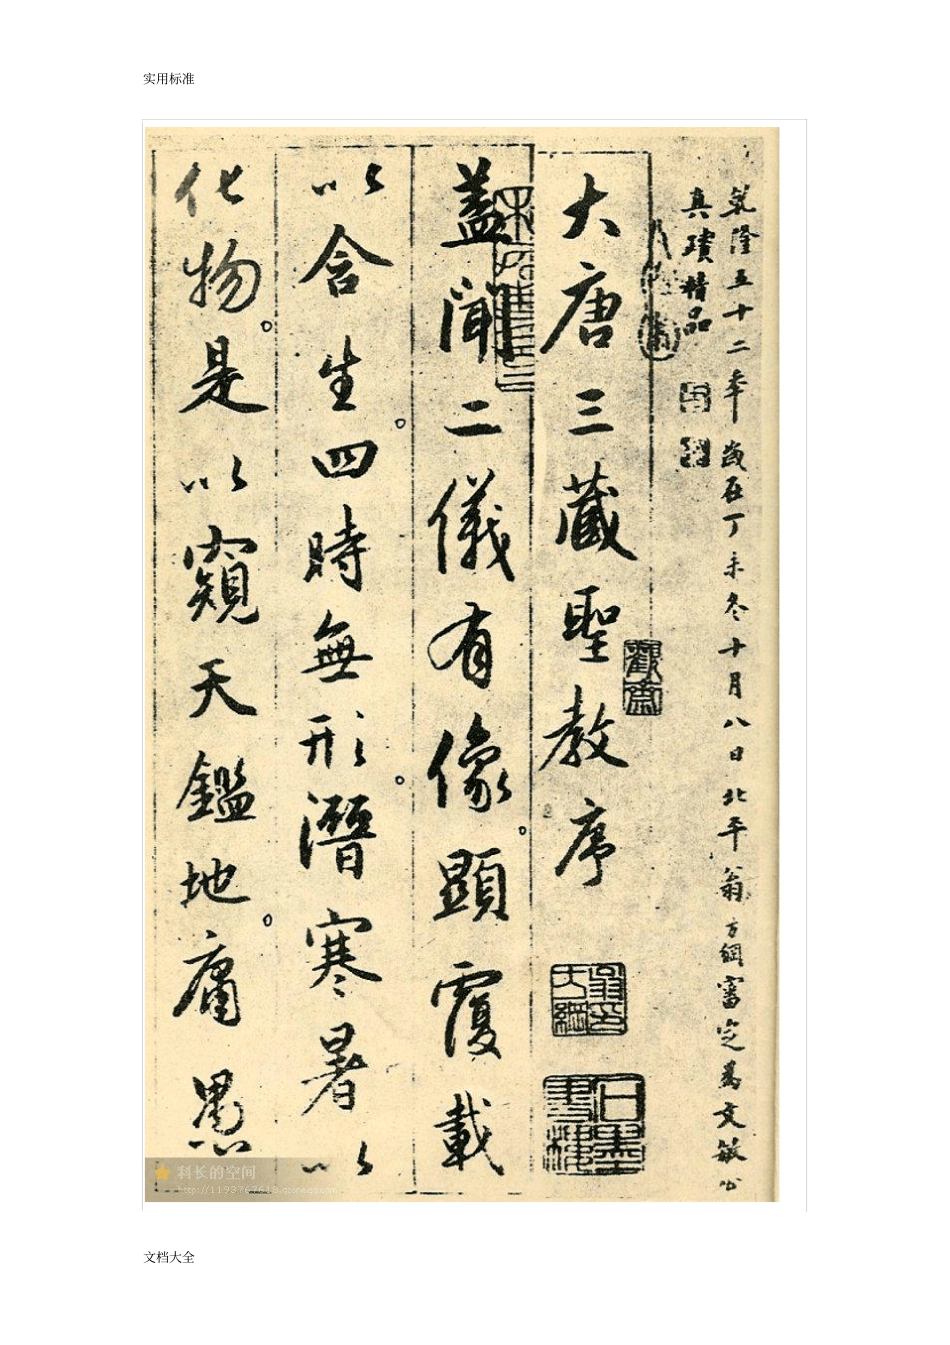 实用标准
乾隆五十二年歲在丁未冬十月八日北平翁方綱審定為文敏公
真蹟精品
大唐三藏聖教序
蓋聞二儀有像。顯覆載
以含生。四時無形。潛寒暑以
化物。是以窺天鑑地。庸愚
觀齋
翁方綱
石墨書樓
科长的空间
文档大全